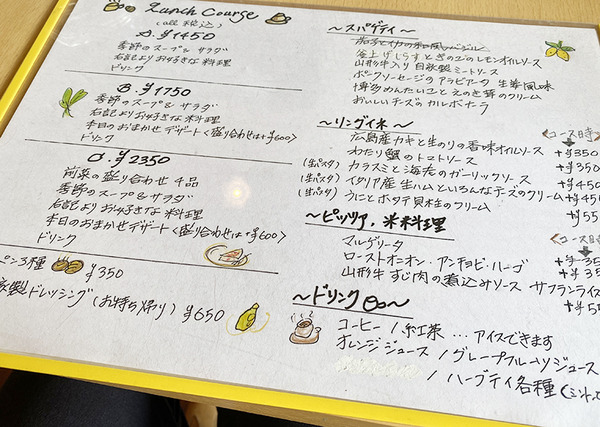 Lunch Course
(all 税込)
A. ¥1450
季節のスープ & サラダ
右記よりお好きな料理
ドリンク
B. ¥1750
季節のスープ & サラダ
右記よりお好きな料理
本日のおまかせデザート〈盛り合わせは+¥600〉
ドリンク
C. ¥2350
前菜の盛り合わせ 4品
季節のスープ & サラダ
右記よりお好きな料理
本日のおまかせデザート〈盛り合わせは+¥600〉
ドリンク
パン3種 ¥350
製ドレッシング (お持ち帰り) ¥650
〜スパゲティ〜
釜上げしらすときのこのレモンオイルソース
山形牛入り自家製ミートソース
ポークソーセージのアラビアータ 生姜風味
博多めんたいことえのき茸のクリーム
おいしいチーズのカルボナーラ
〜リングイネ〜
〈コース時〉
広島産カキと生のりの香味オイルソース +¥350
わたり蟹のトマトソース +¥350
(生パスタ) カラスミと海老のガーリックソース +¥450
(生パスタ) イタリア産生ハムといろんなチーズのクリーム +¥450
(生パスタ) うにとホタテ貝柱のクリーム +¥55
〜ピッツァ, 米料理
〈コース時
マルゲリータ +¥35
ローストオニオン・アンチョビ・ハーゴ +¥35
山形牛すじ肉の煮込みソース サフランライス +¥5
〜ドリンク〜
コーヒー / 紅茶 … アイスできます
オレンジジュース / グレープフルーツジュース
/ ハーブティ各種 (ミント